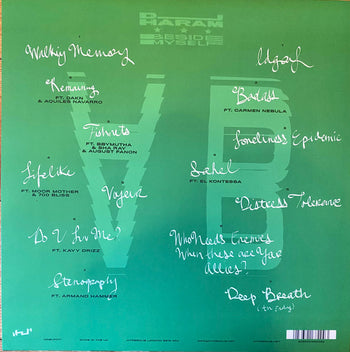 DJ
HARAM
BESIDE
MYSELF
Walking Memory
Remaining
FT. DAKN
& AQUILES NAVARRO
Fishnets
FT. BBYMUTHA
& SHA RAY
& AUGUST FANON
Lifelike
FT. MOOR MOTHER
& 700 BLISS
Voyeur
Do U Luv Me?
FT. KAVY DRIZZ
Stenography
FT. ARMAND HAMMER
A
B
Idgaf
Badass
FT. CARMEN NEBULA
Loneliness Epidemic
Sahel
FT. EL KONTESSA
Distress Tolerance
Who Needs Enemies
When these are Your
Allies?
Deep Breath